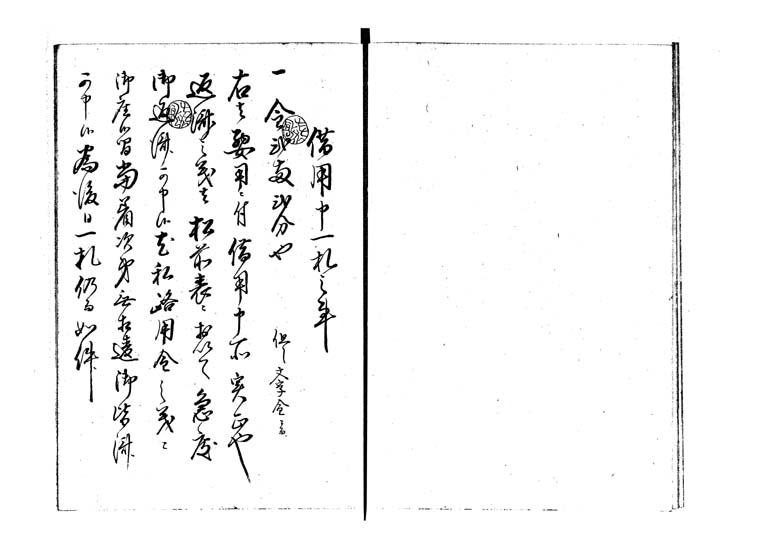 借用申一札之事
一金弐両弐分也 但し文字金也
右者要用ニ付借用申所実正也
返済之義者松前表ニおゐて急度
御返済可申候尤私路用金之義ニ
御座候間当着次第無相違御皆済
可申候為後日一札仍而如件